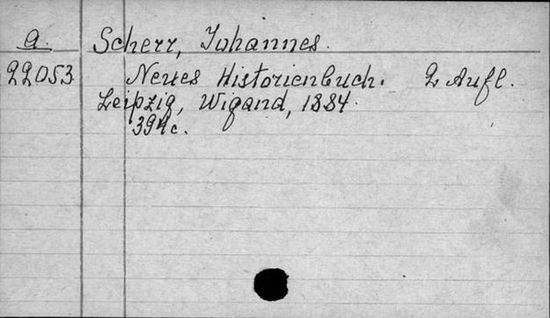 a. Scherr, Johannes.
22053 Neues Historienbuch. 2 Aufl.
Leipzig, Wigand, 1884.
394c.